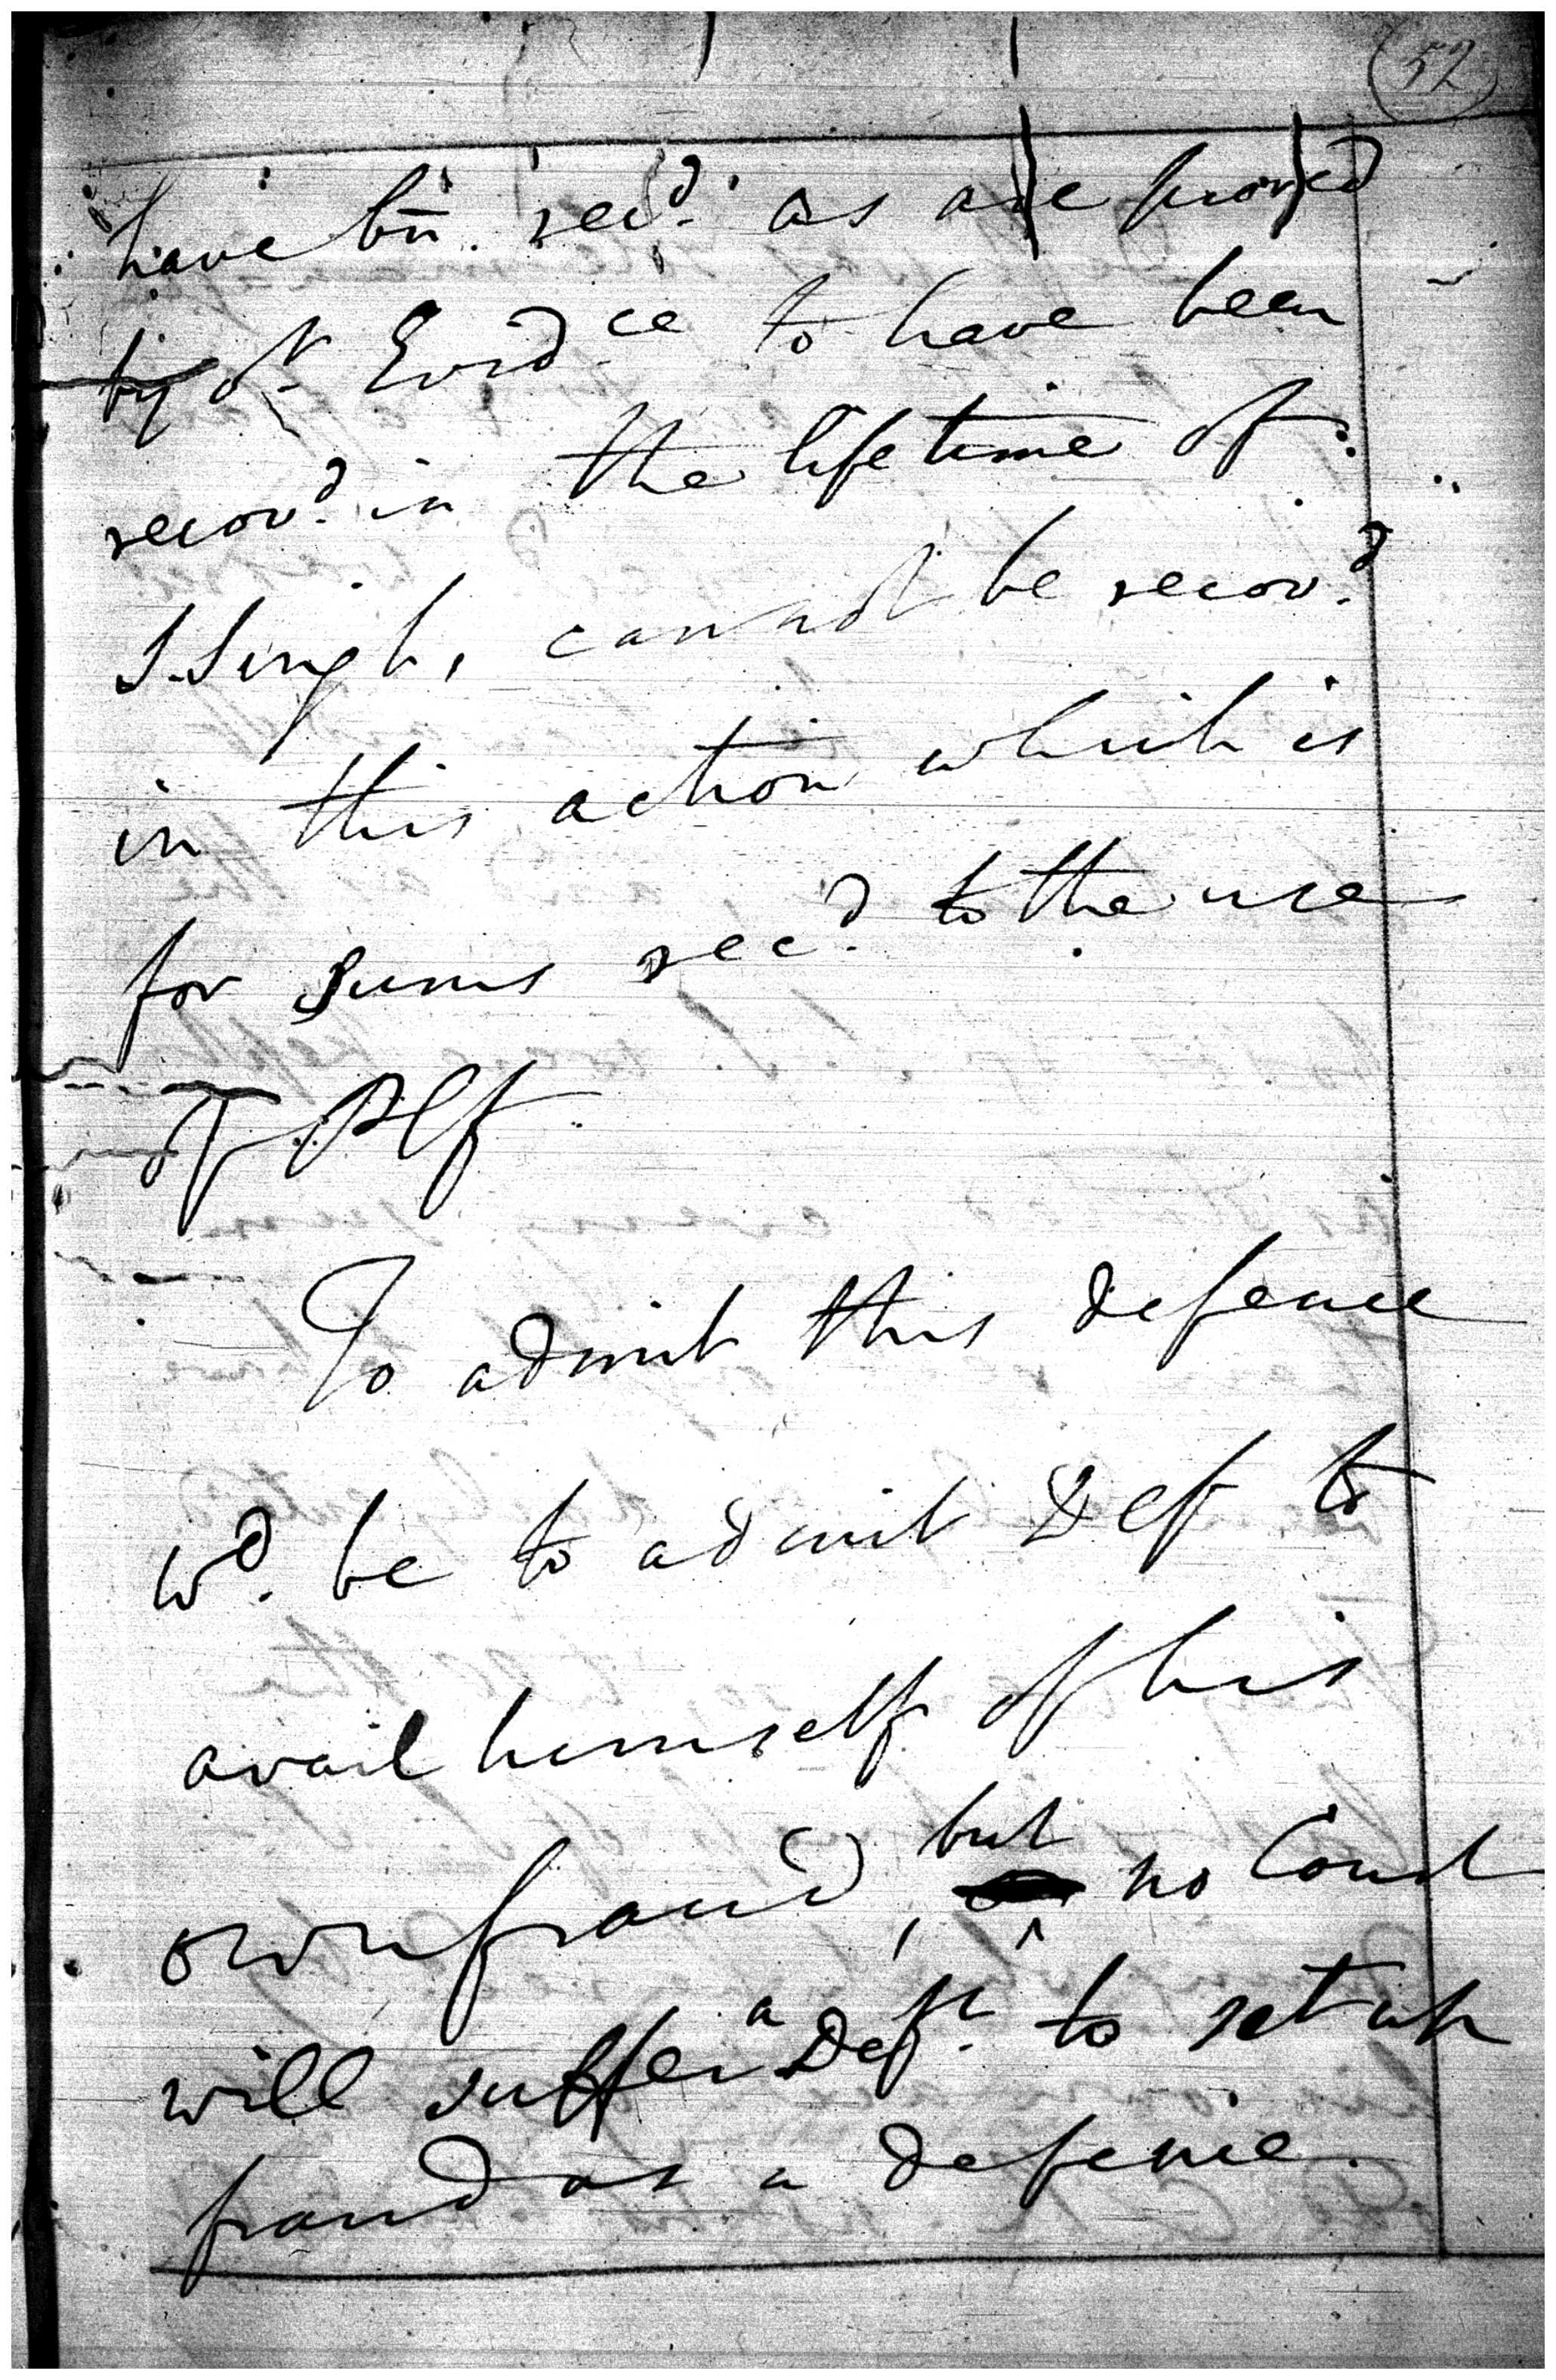 52
have bn. recd. as are proved
by Dt. Evidce to have been
recovd. in the lifetime of
S. Singh, cannot be recovd.
in this action which is
for sums recd. to the use
of Plf
To admit this defence
wd. be to admit Def to
avail himself of his
own fraud, but no Court
will suffer a Deft. to set up
fraud as a defence.